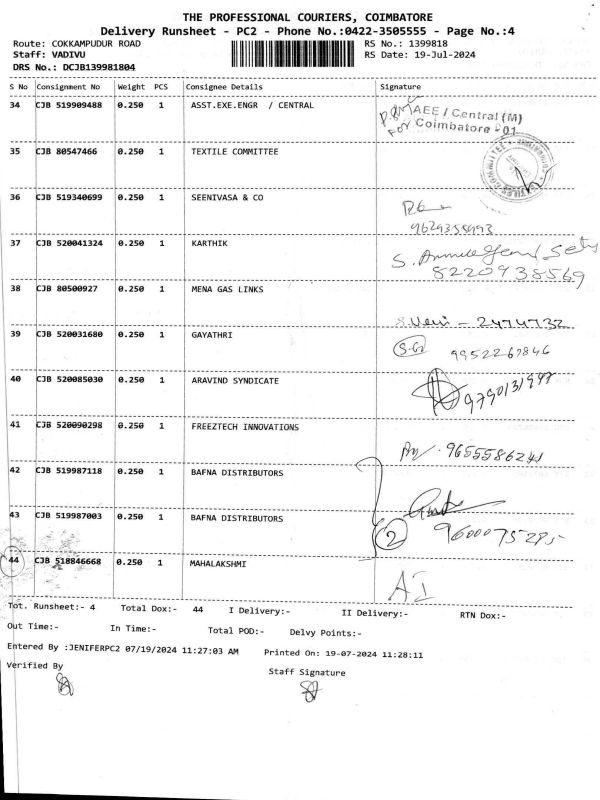 THE PROFESSIONAL COURIERS, COIMBATORE
Delivery Runsheet - PC2 - Phone No.:0422-3505555 - Page No.:4
Route: COKKAMPUDUR ROAD RS No.: 1399818
Staff: VADIVU RS Date: 19-Jul-2024
DRS No.: DCJB139981804
S No Consignment No Weight PCS Consignee Details Signature
34 CJB 519909488 0.250 1 ASST.EXE.ENGR / CENTRAL
AEE / Central (M)
FOR Coimbatore
35 CJB 80547466 0.250 1 TEXTILE COMMITTEE
36 CJB 519340699 0.250 1 SEENIVASA & CO
9629355993
37 CJB 520041324 0.250 1 KARTHIK
8220938569
38 CJB 80500927 0.250 1 MENA GAS LINKS
S.Veni - 2474732
39 CJB 520031680 0.250 1 GAYATHRI
9952267846
40 CJB 520085030 0.250 1 ARAVIND SYNDICATE
41 CJB 520090298 0.250 1 FREEZTECH INNOVATIONS
9655586241
42 CJB 519987118 0.250 1 BAFNA DISTRIBUTORS
43 CJB 519987003 0.250 1 BAFNA DISTRIBUTORS
2 9600075285
44 CJB 518846668 0.250 1 MAHALAKSHMI
Tot. Runsheet:- 4 Total Dox:- 44 I Delivery:- II Delivery:- RTN Dox:-
Out Time:- In Time:- Total POD:- Delvy Points:-
Entered By :JENIFERPC2 07/19/2024 11:27:03 AM Printed On: 19-07-2024 11:28:11
Verified By Staff Signature